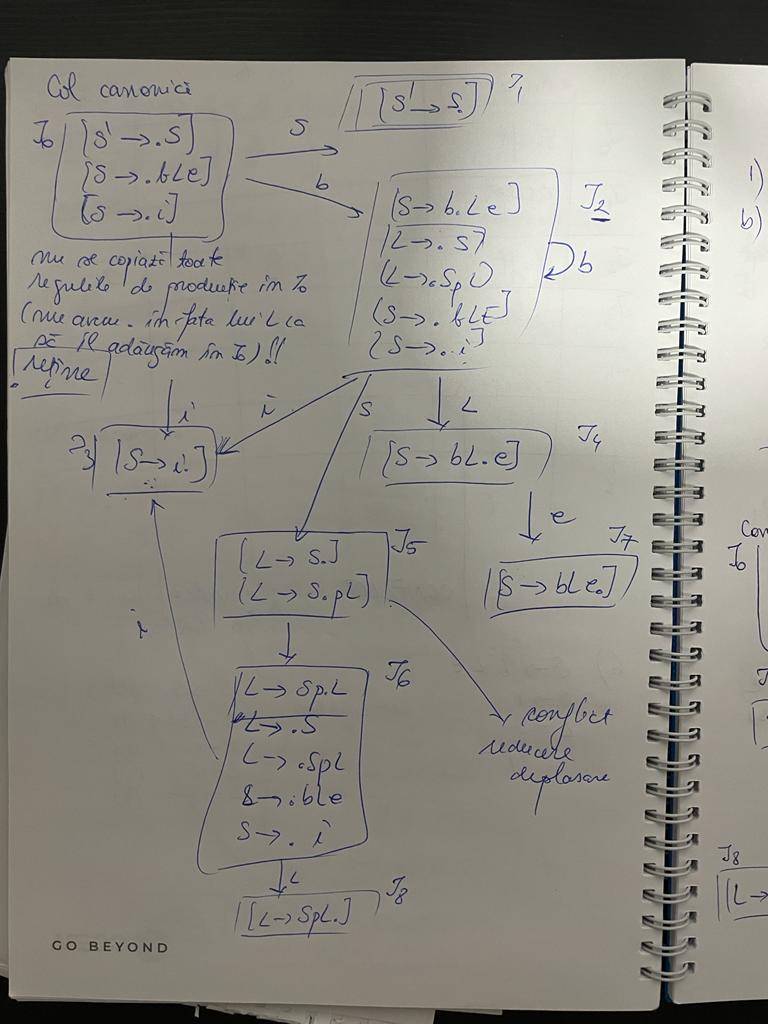 Col canonică
I0
[S' → .S]
[S → .bLe]
[S → .i]
S
b
[S' → S.]
I1
[S → b.Le]
[L → .S]
(L → .SpL)
(S → .bLE]
[S → .i]
I2
b
nu se copiază toate
regulile de producție în I0
(nu avem . în fața lui L ca
să îl adăugăm în I0)!!
! reține
i
i
S
L
I3
[S → i.]
[S → bL.e]
I4
e
[L → S.]
(L → S.pL)
I5
[S → bLe.]
I7
i
L → Sp.L
L → .S
L → .SpL
S → .bLe
S → .i
I6
conflict
reducere
deplasare
L
[L → SpL.]
I8
GO BEYOND
1)
b)
Con
I0
I8
[L →